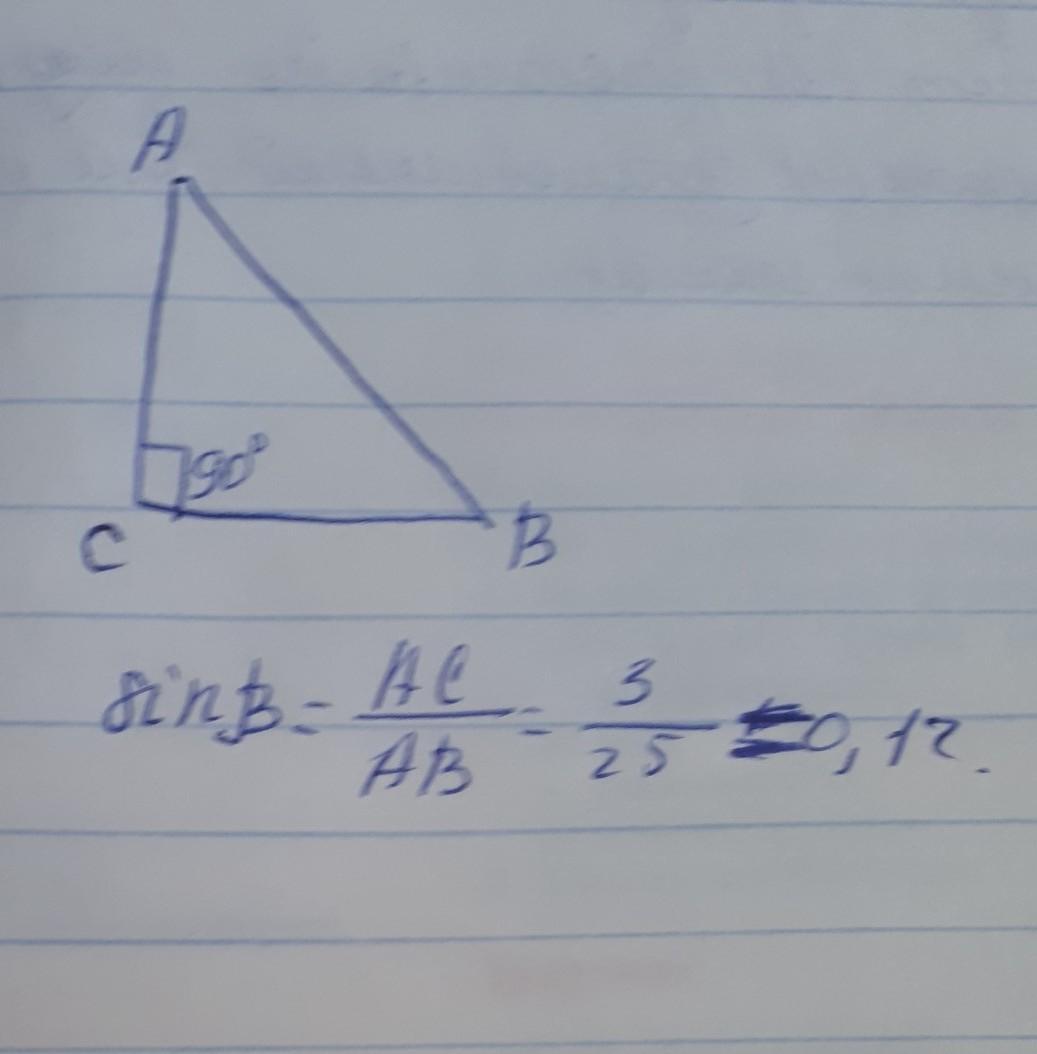 A
90°
C
B
sin B = AC/AB = 3/25 = 0,12.